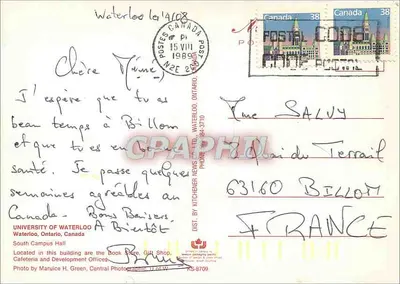 Waterloo le 14/08
Chère Mémé,
J'espère que tu as
beau temps à Billom
et que tu es en bonne
santé. Je passe quelques
semaines agréables au
Canada. Bons Baisers.
A Bientôt
UNIVERSITY OF WATERLOO
Waterloo, Ontario, Canada
South Campus Hall
Located in this building are the Book Store, Gift Shop,
Cafeteria and Development Offices
Photo by Maruice H. Green, Central Photographic, U of W
KS-9709
DIST. BY KITCHENER NEWS CO. LTD., WATERLOO, ONTARIO
POSTES CANADA POST
15 VIII
1989
N2E 2S0
Canada 38
Canada 38
POSTAL CODE
CODE POSTAL
CPAPHIL
Mme SALVY
Quai du Terrail
63160 BILLOM
FRANCE